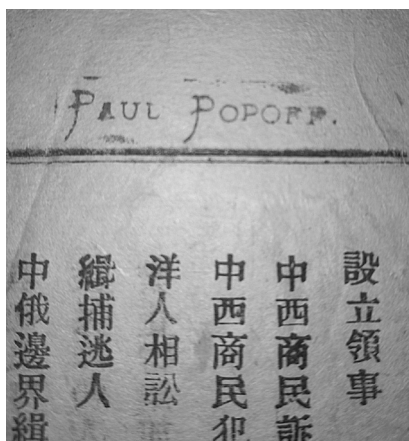 PAUL POPOFF.
設立領事
中西商民訴
中西商民犯
洋人相訟
緝捕逃人
中俄邊界緝